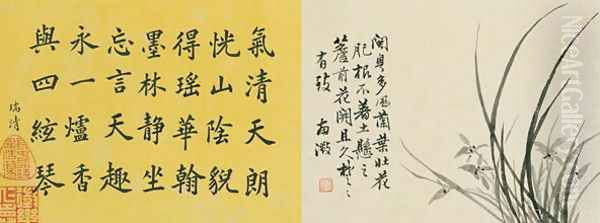 閩粵多風蘭葉壯花
肥根不著土懸之
簷前花開且久楚〻
有致
氣清天朗
恍山陰貌
得瑤華翰
墨林靜坐
忘言天趣
永一爐香
與四絃琴
瑞清